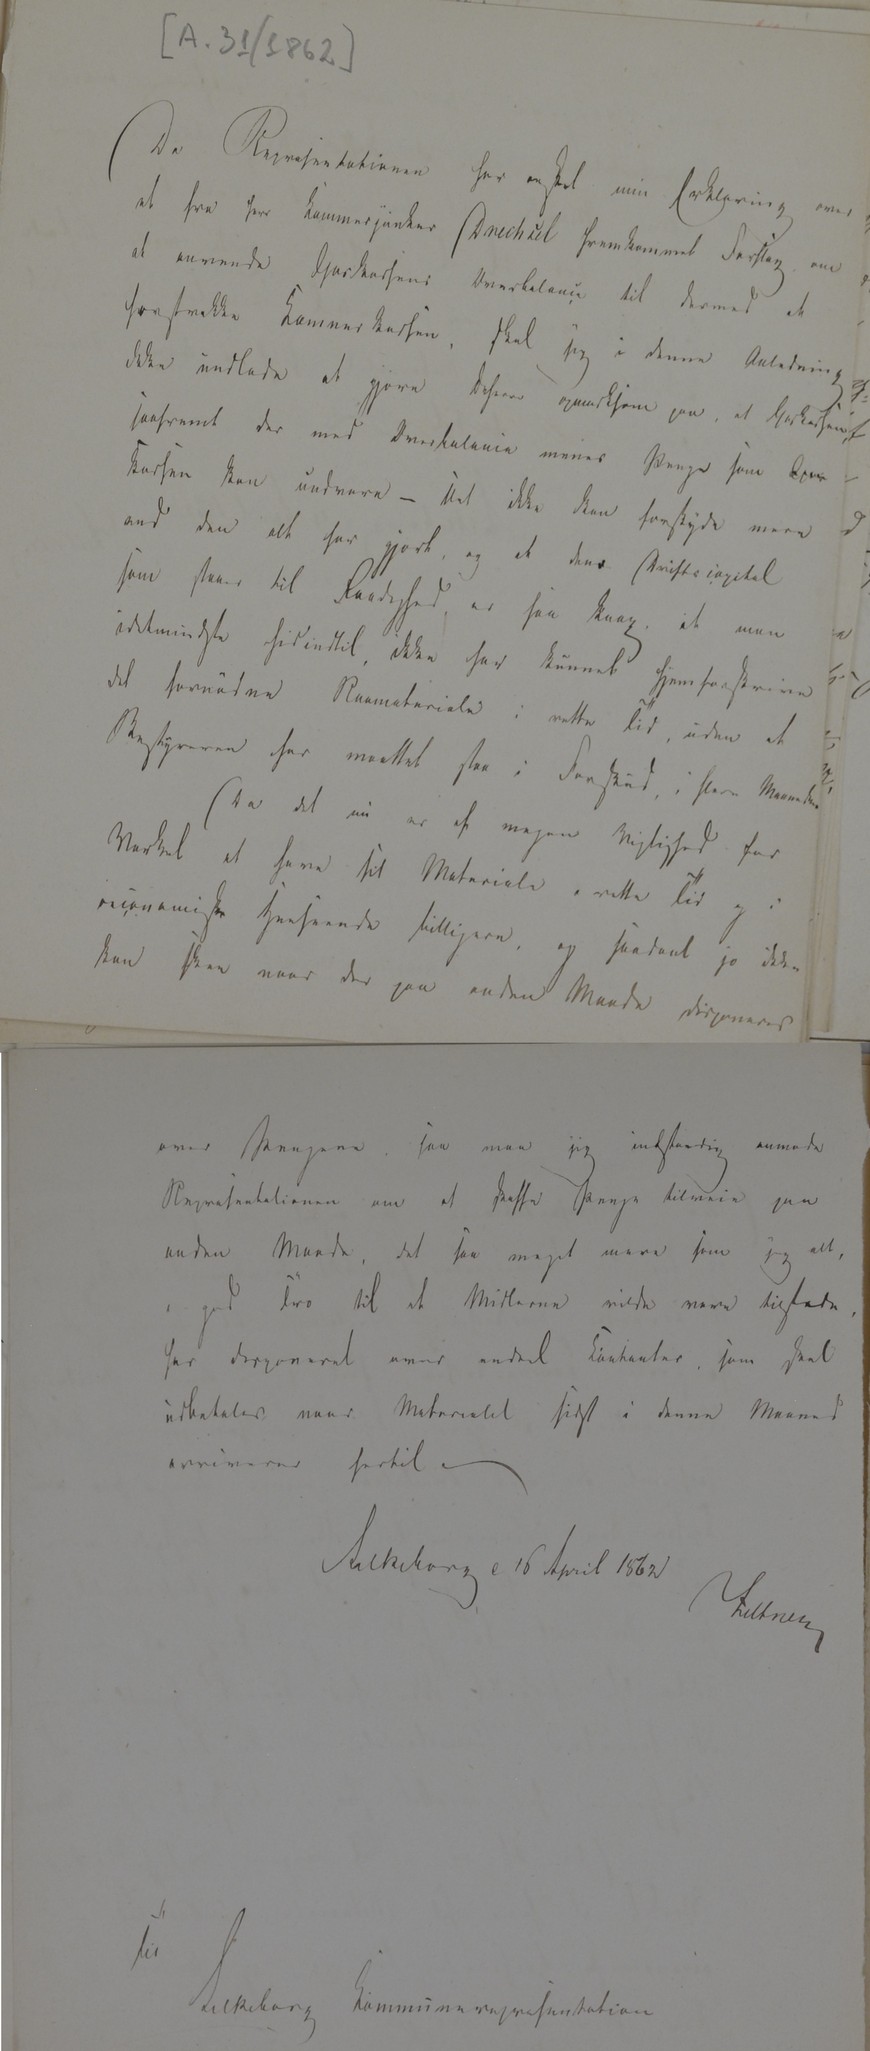 [A. 31/1862]
Da Repræsentationen har ønsket min Erklæring over
et fra Herr Kammerjunker Drechsel fremkommet Forslag om
at anvende Gaskassens Overbalance til dermed at
forstrække Kæmnerkassen, skal jeg i denne Anledning
ikke undlade at gjøre opmærksom paa, at Gaskassen,
saafremt der med Overbalance menes Penge som
Kassen kan undvære – slet ikke kan forskyde mere
end den alt har gjort, og at dens Driftscapital
som staaer til Raadighed, er saa knap, at man
idetmindste hidindtil, ikke har kunnet hjemforskrive
det fornødne Raamateriale i rette Tid, uden at
Bestyreren har maattet staa i Forskud, i flere Maaneder.
Da det nu er af megen Vigtighed for
Værket at have sit Materiale i rette Tid og i
oeconomiske Henseende billigere, og saadant jo ikke
kan skee naar der paa anden Maade disponeres
over Pengene, saa maa jeg indstændig anmode
Repræsentationen om at skaffe Penge tilveie paa
anden Maade, det saa meget mere som jeg alt,
i god Tro til at Midlerne vilde være tilstede,
har disponeret over endeel Contanter, som skal
udbetales naar Materialet sidst i denne Maaned
arriverer hertil
Silkeborg d 16 April 1862
Zeltner
Til
Silkeborg Kommunerepræsentation